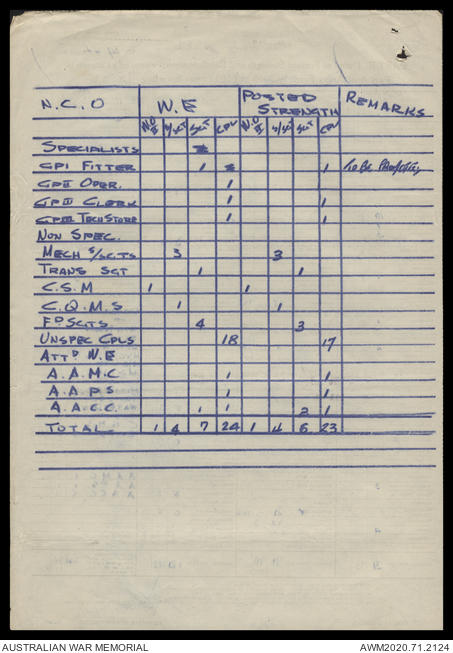 N.C.O W.E POSTED STRENGTH REMARKS
WO II S/SGT SGT CPL W.O II S/SGT SGT CPL
SPECIALISTS
GPI FITTER 1 1 To Be
GPII OPER. 1
GPII CLERK 1 1
GPIII TECH STORE 1 1
NON SPEC.
MECH S/SGTS 3 3
TRANS SGT 1 1
C.S.M 1 1
C.Q.M.S 1 1
FD SGTS 4 3
UNSPEC CPLS 18 17
ATTD W.E
A.A.M.C 1 1
A.A.P.S 1 1
A.A.C.C. 1 1 2 1
TOTAL 1 4 7 24 1 4 6 23
AUSTRALIAN WAR MEMORIAL AWM2020.71.2124